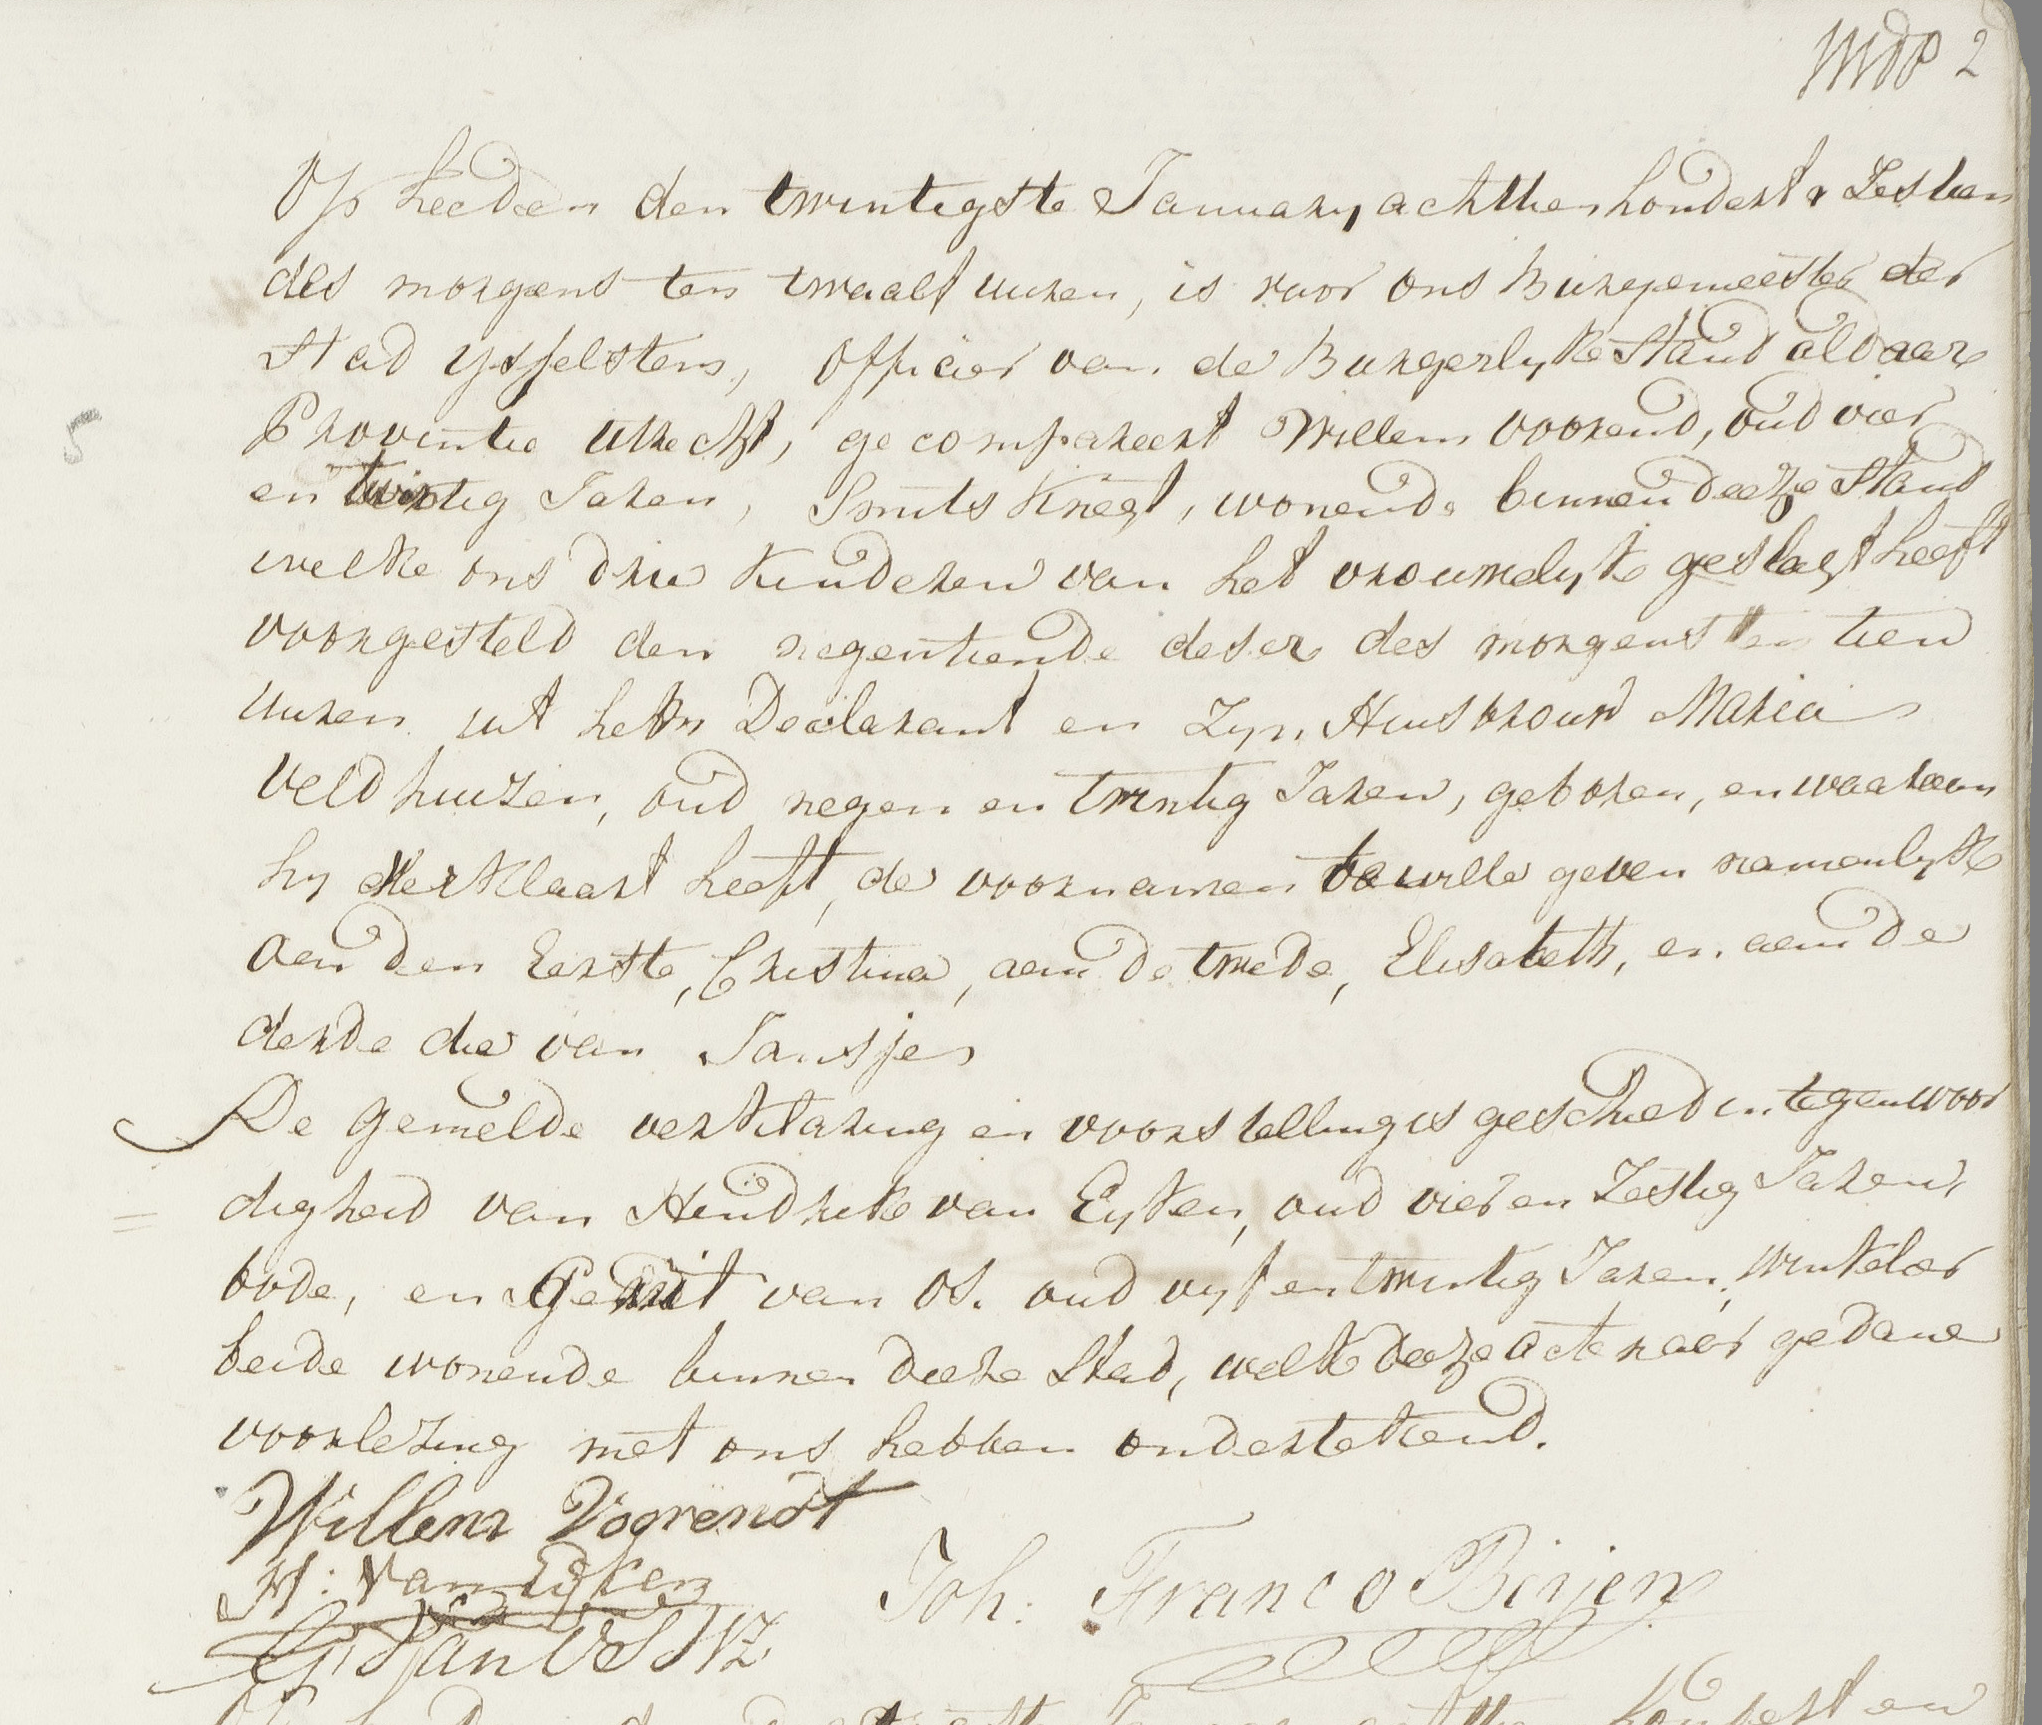 2
Op heeden den twintigste January achttienhondert & Zestien
des morgens ten twaalf uuren, is voor ons Burgemeester der
Stad ysselstein, Officier van de Burgerlyke Stand aldaar
Provintie Utrecht, gecompareert Willem voorend, oud vier
en twintig Jaren, Smits Knegt, wonende binnen deeze Stand
welke ons drie kinderen van het vrouwelyke geslagt heeft
voorgesteld den negentiende deser des morgens ten tien
uuren uit hem Declarant en Zyn Huisvrouw Maria
veldhuizen, oud negen en twintig Jaren, geboren, en waaraan
hy verklaart heeft, de voornamen te wille geven namenlyke
aan den Eerste, Christina, aan de twede, Elisabeth, en aan de
derde die van Jansje
De gemelde verklaring en voorstelling is geschied in tegenwoor
digheid van Hendrik van Eyken, oud vier en Zestig Jaren,
bode, en Gerrit van Os. oud vyf en twintig Jaren, winkelier
beide wonende binnen deeze Stad, welke deeze acte naar gedane
voorlezing met ons hebben ondertekend.
5
=
Willem Voorendt
H: Van Eyken
G: Van Os WZ
Joh: Franco Beijen